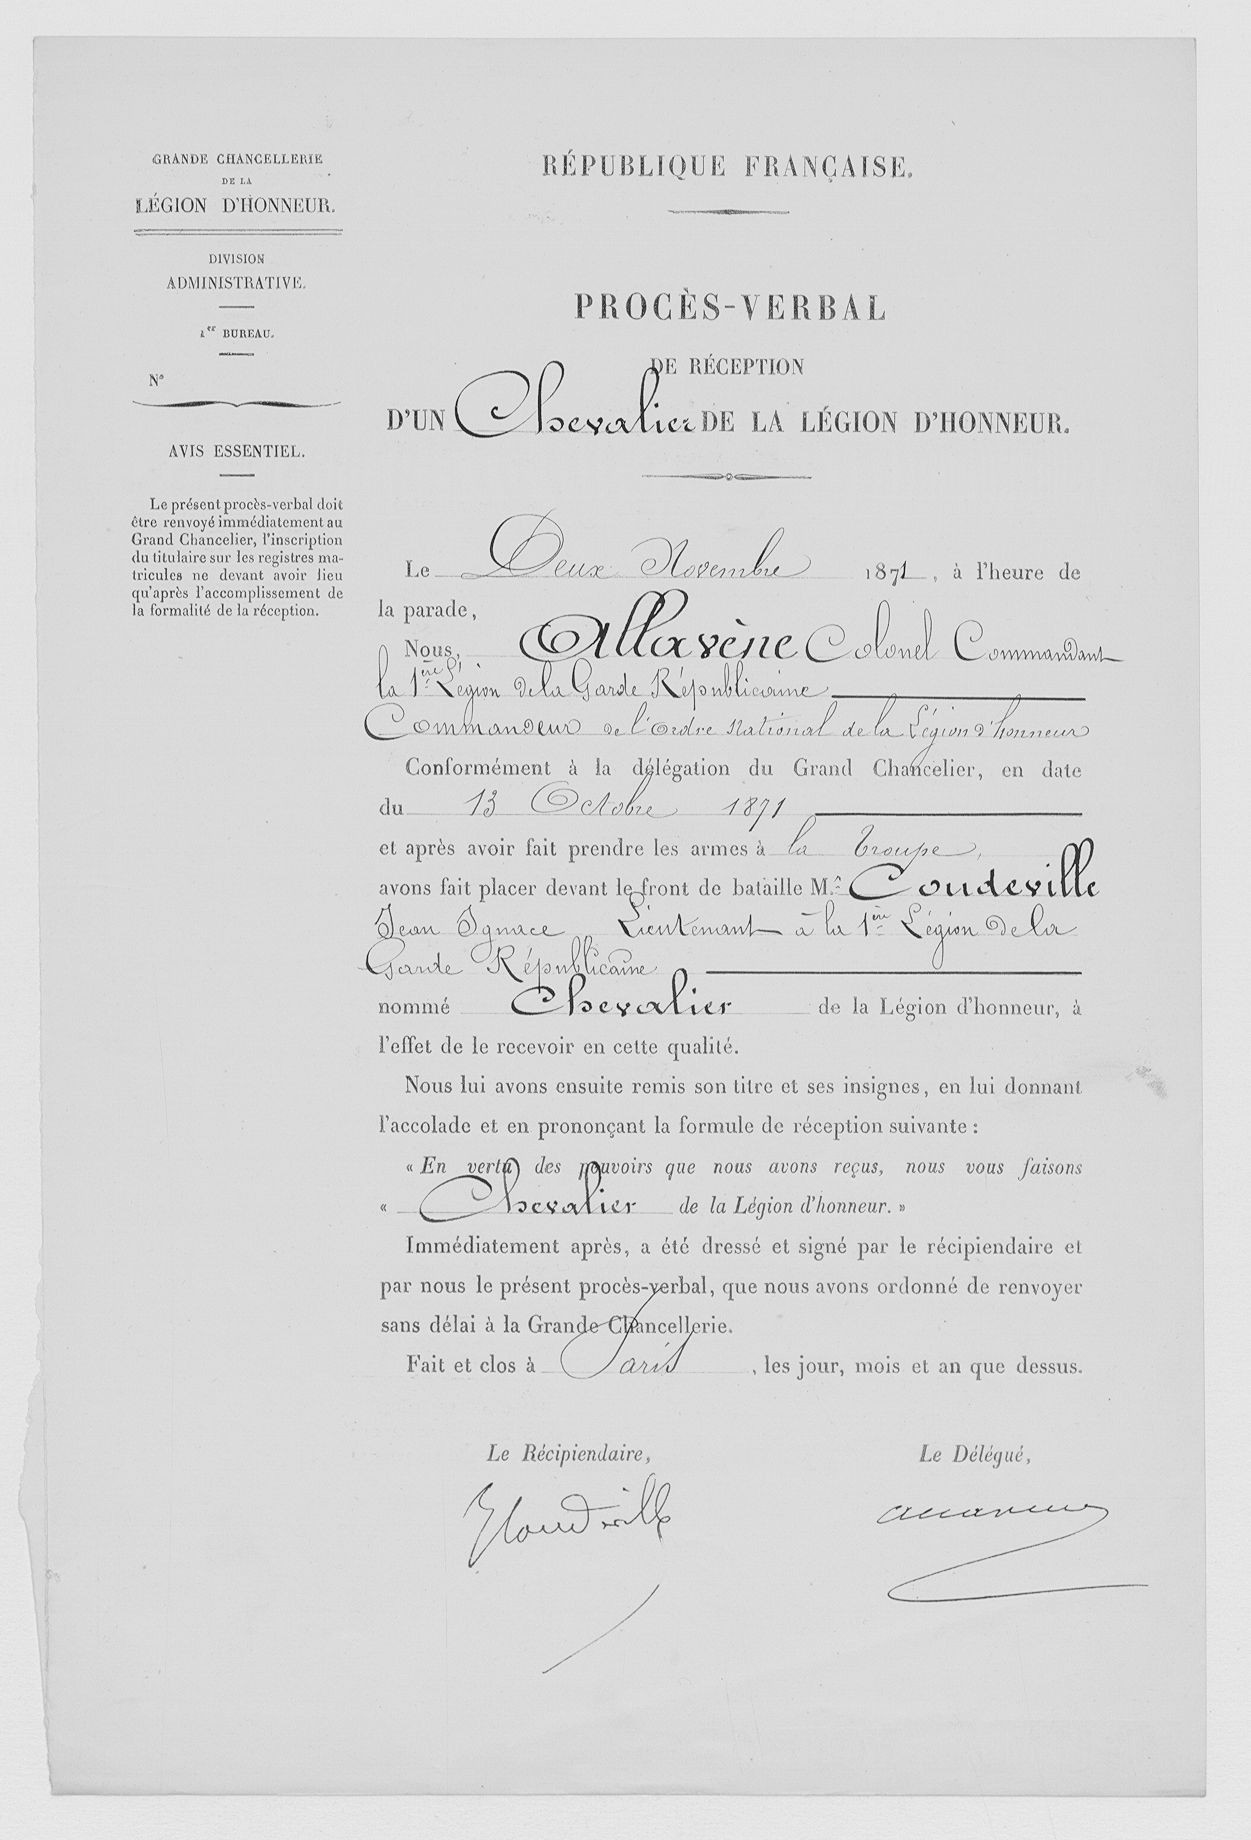 GRANDE CHANCELLERIE
DE LA
LÉGION D'HONNEUR.
DIVISION
ADMINISTRATIVE.
1er BUREAU.
N°
AVIS ESSENTIEL.
Le présent procès-verbal doit
être renvoyé immédiatement au
Grand Chancelier, l'inscription
du titulaire sur les registres ma-
tricules ne devant avoir lieu
qu'après l'accomplissement de
la formalité de la réception.
RÉPUBLIQUE FRANÇAISE.
PROCÈS-VERBAL
DE RÉCEPTION
D'UN Chevalier DE LA LÉGION D'HONNEUR.
Le Deux Novembre 1871, à l'heure de
la parade,
Nous, Allavène Colonel Commandant
la 1ère Légion de la Garde Républicaine
Commandeur de l'Ordre National de la Légion d'honneur
Conformément à la délégation du Grand Chancelier, en date
du 13 Octobre 1871
et après avoir fait prendre les armes à la troupe,
avons fait placer devant le front de bataille M.r Coudeville
Jean Ignace Lieutenant à la 1ère Légion de la
Garde Républicaine
nommé Chevalier de la Légion d'honneur, à
l'effet de le recevoir en cette qualité.
Nous lui avons ensuite remis son titre et ses insignes, en lui donnant
l'accolade et en prononçant la formule de réception suivante :
« En vertu des pouvoirs que nous avons reçus, nous vous faisons
« Chevalier de la Légion d'honneur. »
Immédiatement après, a été dressé et signé par le récipiendaire et
par nous le présent procès-verbal, que nous avons ordonné de renvoyer
sans délai à la Grande Chancellerie.
Fait et clos à Paris, les jour, mois et an que dessus.
Le Récipiendaire,
Le Délégué,
Coudeville
Allavène